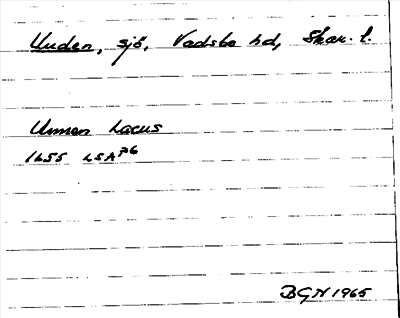 Unden, sjö, Vadsbo hd, Skar. l.
Unnen Lacus
1655 LSA P6
BGN 1965